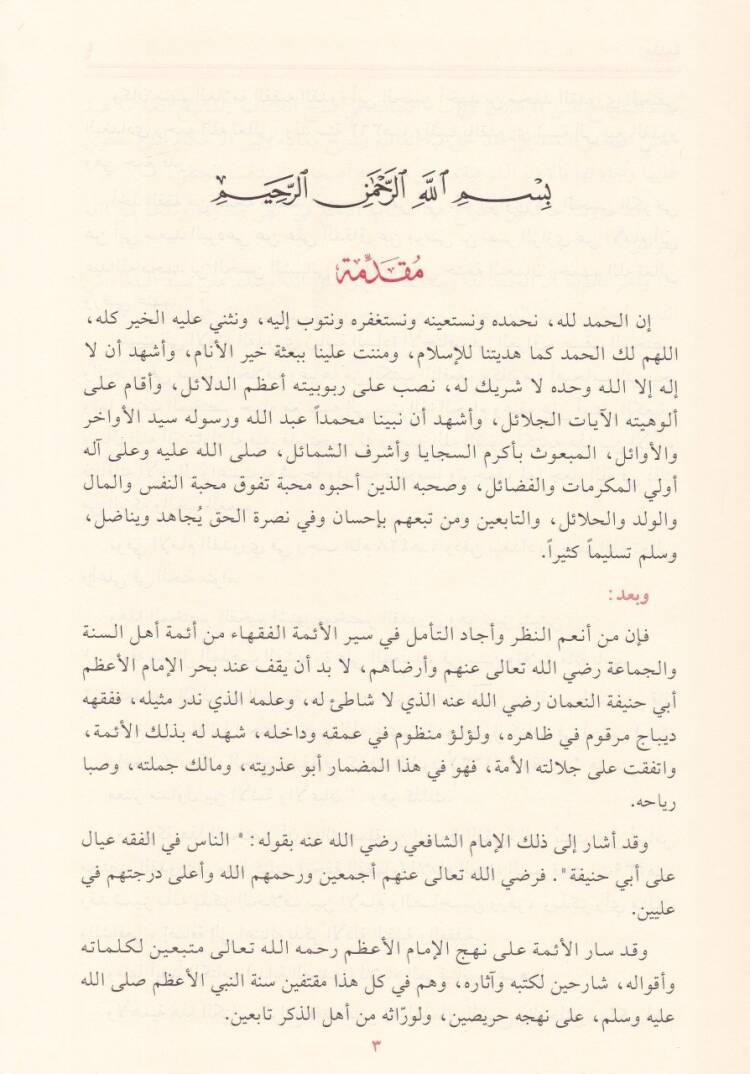 بِسْمِ اللَّهِ الرَّحْمَٰنِ الرَّحِيمِ
مُقَدِّمَة
إن الحمد لله، نحمده ونستعينه ونستغفره ونتوب إليه، ونثني عليه الخير كله،
اللهم لك الحمد كما هديتنا للإسلام، ومننت علينا ببعثة خير الأنام، وأشهد أن لا
إله إلا الله وحده لا شريك له، نصب على ربوبيته أعظم الدلائل، وأقام على
ألوهيته الآيات الجلائل، وأشهد أن نبينا محمداً عبد الله ورسوله سيد الأواخر
والأوائل، المبعوث بأكرم السجايا وأشرف الشمائل، صلى الله عليه وعلى آله
أولي المكرمات والفضائل، وصحبه الذين أحبوه محبة تفوق محبة النفس والمال
والولد والحلائل، والتابعين ومن تبعهم بإحسان وفي نصرة الحق يُجاهد ويناضل،
وسلم تسليماً كثيراً.
وبعد:
فإن من أنعم النظر وأجاد التأمل في سير الأئمة الفقهاء من أئمة أهل السنة
والجماعة رضي الله تعالى عنهم وأرضاهم، لا بد أن يقف عند بحر الإمام الأعظم
أبي حنيفة النعمان رضي الله عنه الذي لا شاطئ له، وعلمه الذي ندر مثيله، ففقهه
ديباج مرقوم في ظاهره، ولؤلؤ منظوم في عمقه وداخله، شهد له بذلك الأئمة،
واتفقت على جلالته الأمة، فهو في هذا المضمار أبو عذريته، ومالك جملته، وصبا
رياحه.
وقد أشار إلى ذلك الإمام الشافعي رضي الله عنه بقوله: " الناس في الفقه عيال
على أبي حنيفة". فرضي الله تعالى عنهم أجمعين ورحمهم الله وأعلى درجتهم في
عليين.
وقد سار الأئمة على نهج الإمام الأعظم رحمه الله تعالى متبعين لكلماته
وأقواله، شارحين لكتبه وآثاره، وهم في كل هذا مقتفين سنة النبي الأعظم صلى الله
عليه وسلم، على نهجه حريصين، ولورّاثه من أهل الذكر تابعين.
٣